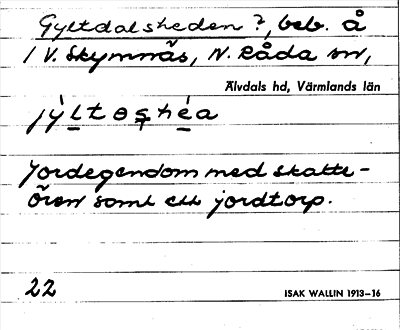 Gyltdalsheden?, beb. å
1 V. Skymnäs, N. Råda sn,
Älvdals hd, Värmlands län
jỳltəʂhéa
Jordegendom med skatte-
ören samt ett jordtorp.
22 ISAK WALLIN 1913–16